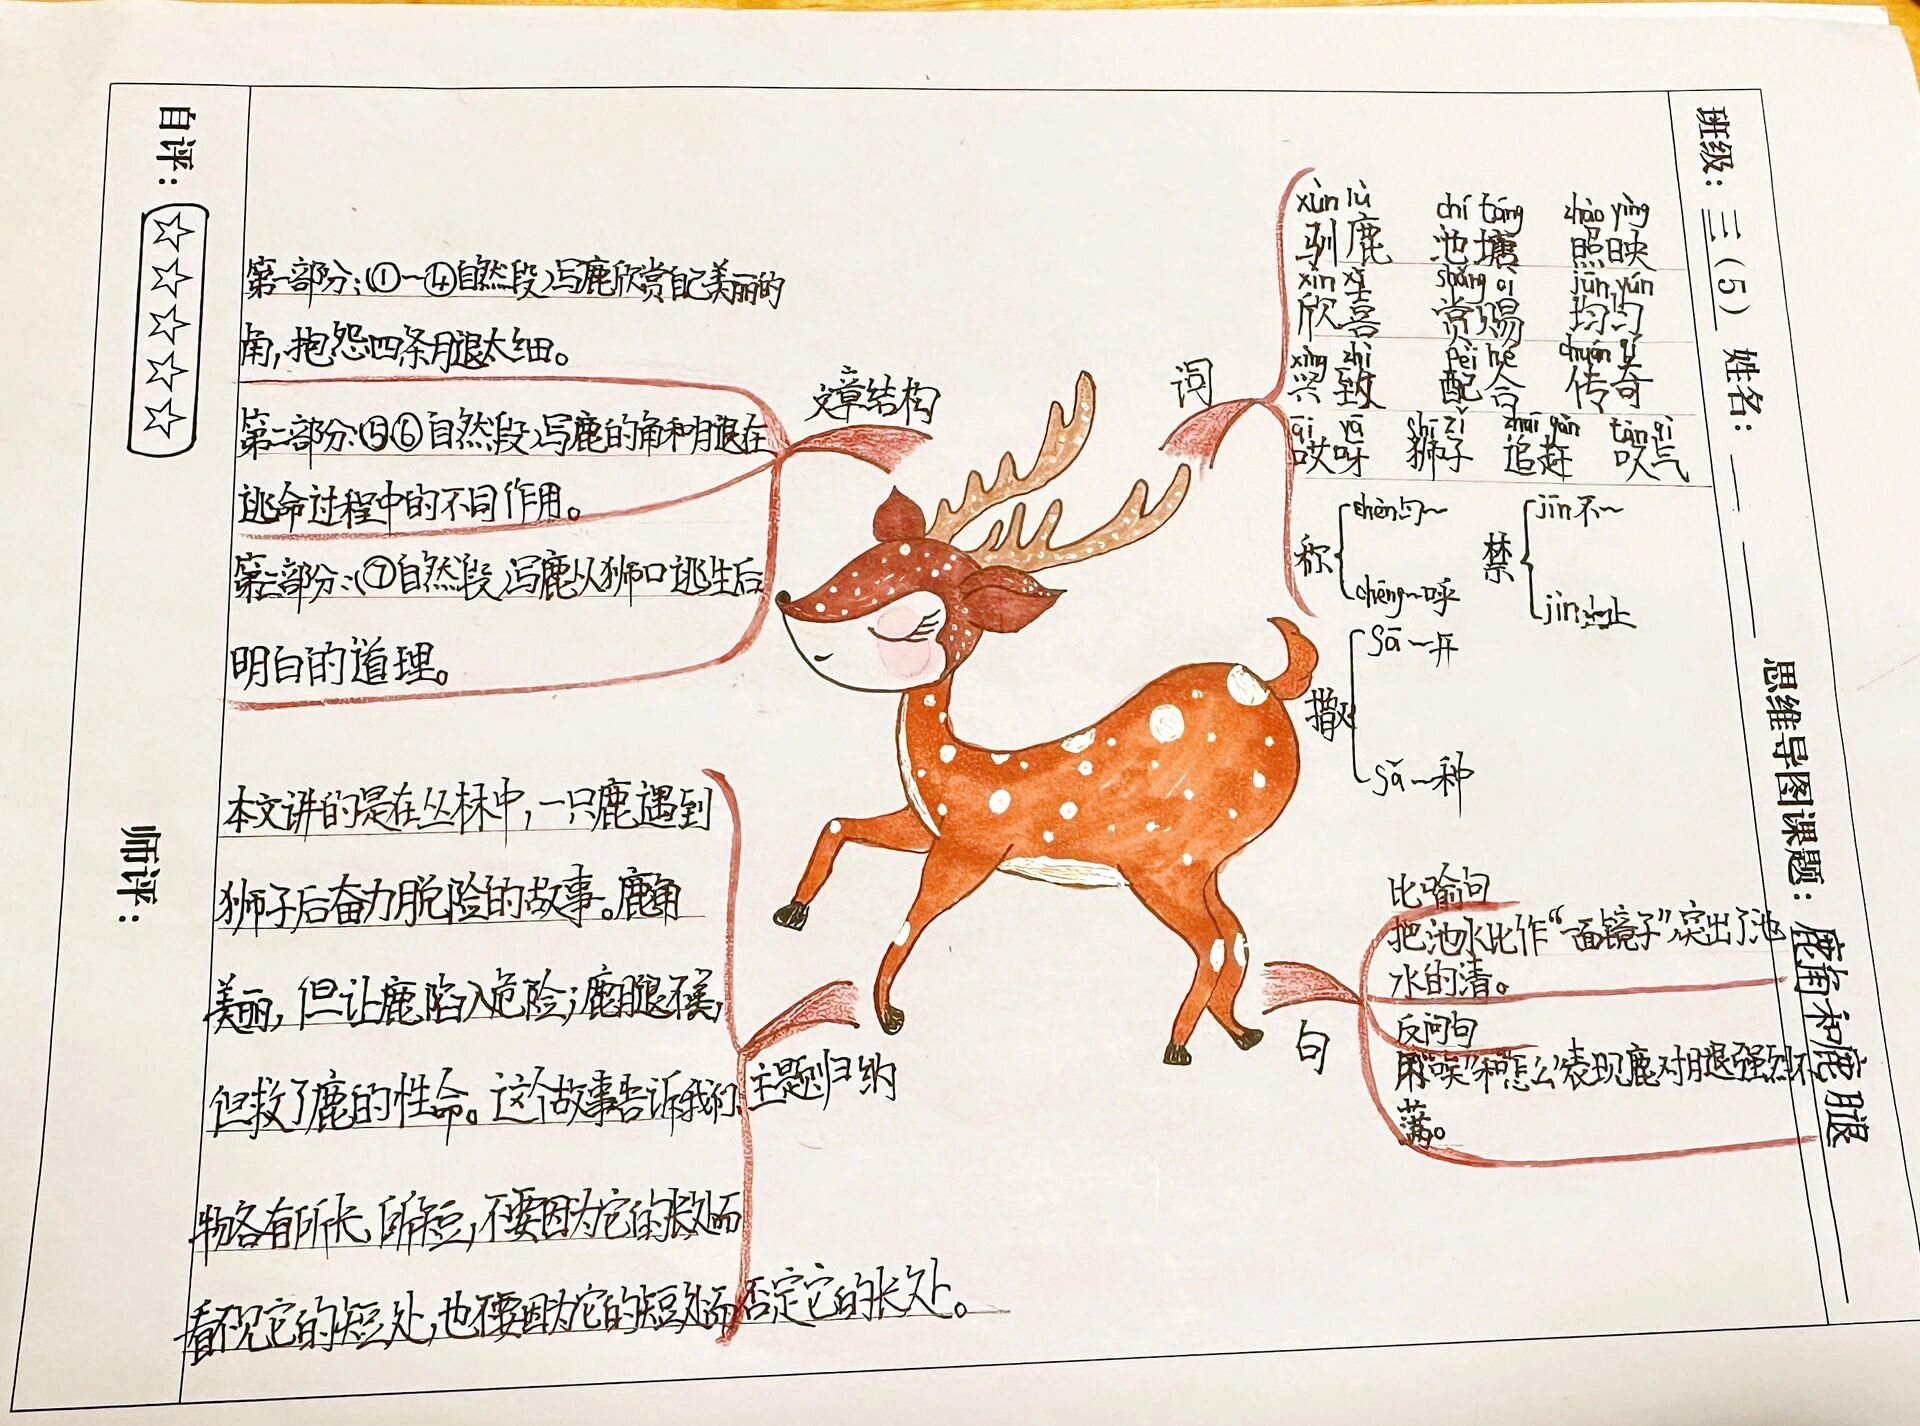 班级：三（5） 姓名：
思维导图课题：鹿角和鹿腿
自评：☆☆☆☆☆
师评：
文章结构
第一部分：（①～④自然段）写鹿欣赏自己美丽的
角，抱怨四条腿太细。
第二部分：（⑤⑥自然段）写鹿的角和腿在
逃命过程中的不同作用。
第三部分：（⑦自然段）写鹿从狮口逃生后
明白的道理。
词
xùn lù chí táng zhào yìng
驯鹿 池塘 照映
xīn xǐ shǎng cì jūn yún
欣喜 赏赐 均匀
xìng zhì pèi hé chuán qí
兴致 配合 传奇
āi yā shī zǐ zhuī gǎn tàn qì
哎呀 狮子 追赶 叹气
称 chèn匀～ chēng～呼
禁 jīn不～ jìn～止
撒 sā～开 sǎ～种
主题归纳
本文讲的是在丛林中，一只鹿遇到
狮子后奋力脱险的故事。鹿角
美丽，但让鹿陷入危险；鹿腿不美，
但救了鹿的性命。这个故事告诉我们，
物各有所长、所短，不要因为它的长处而
看不见它的短处，也不要因为它的短处而否定它的长处。
句
比喻句
把池水比作“一面镜子”，突出了池
水的清。
反问句
用“唉”和“怎么”表现鹿对腿强烈不
满。